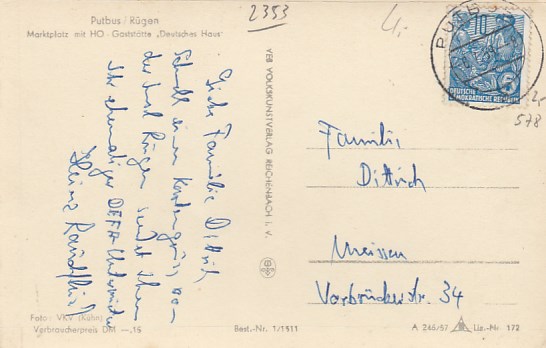 Putbus / Rügen
Marktplatz mit HO-Gaststätte „Deutsches Haus"
2353
4,-
PUTBUS
10
DEUTSCHE
DEMOKRATISCHE REPUBLIK
5
578
Familie Dittrich,
einen Kartengruß von
der Insel Rügen sendet Ihnen
Ihr ehemaliger DEFA-
Heinz
VEB VOLKSKUNSTVERLAG REICHENBACH I. V.
Familie
Dittrich
Meissen
Vorbrückerstr. 34
Foto: VKV (Kühn)
Verbraucherpreis DM —.15
Best.-Nr. 1/1511
A 246/57
Liz.-Nr. 172